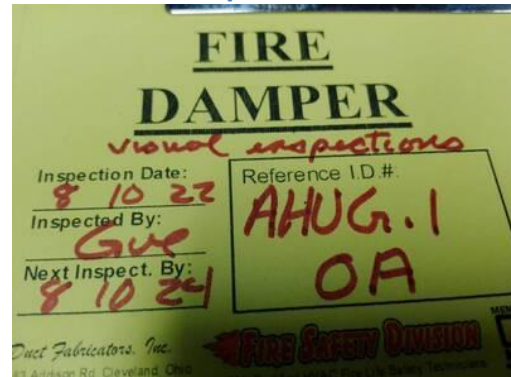 FIRE
DAMPER
visual inspections
Inspection Date:
8 10 22
Inspected By:
Gue
Next Inspect. By:
8 10 24
Reference I.D.#:
AHUG.1
OA
Duct Fabricators, Inc.
FIRE SAFETY DIVISION
Addison Rd. Cleveland, Ohio
HVAC Fire Life Safety Technicians